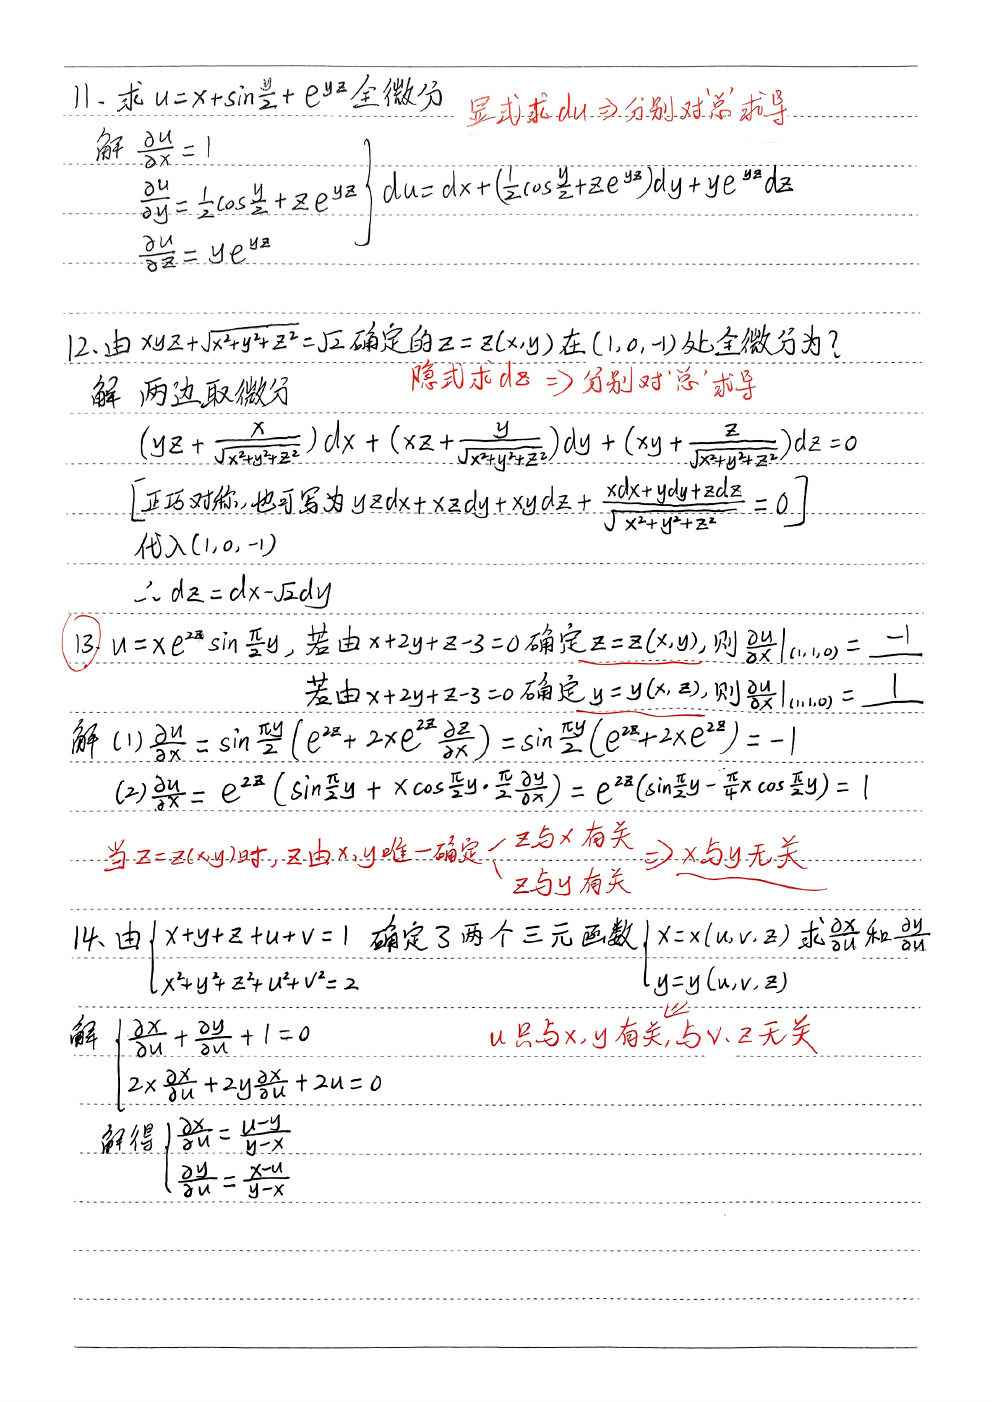 11、求 u=x+sin y/2 + e^{yz} 全微分
显式求du ⇒ 分别对'总'求导
解 ∂u/∂x = 1
∂u/∂y = 1/2 cos y/2 + z e^{yz} } du = dx + (1/2 cos y/2 + z e^{yz})dy + y e^{yz} dz
∂u/∂z = y e^{yz}
12、由 xyz+√(x²+y²+z²)=√2 确定的 z=z(x,y) 在 (1,0,-1) 处全微分为?
隐式求dz ⇒ 分别对'总'求导
解 两边取微分
(yz + x/√(x²+y²+z²))dx + (xz + y/√(x²+y²+z²))dy + (xy + z/√(x²+y²+z²))dz = 0
[正巧对称,也可写为 yzdx+xzdy+xydz + (xdx+ydy+zdz)/√(x²+y²+z²) = 0]
代入(1,0,-1)
∴ dz = dx-√2dy
13. u=xe^{2z} sin π/2 y, 若由 x+2y+z-3=0 确定 z=z(x,y), 则 ∂u/∂x|(1,1,0) = -1
若由 x+2y+z-3=0 确定 y=y(x,z), 则 ∂u/∂x|(1,1,0) = 1
解 (1) ∂u/∂x = sin πy/2 (e^{2z} + 2xe^{2z} ∂z/∂x) = sin πy/2 (e^{2z}+2xe^{2z}) = -1
(2) ∂u/∂x = e^{2z} (sin π/2 y + x cos π/2 y · π/2 ∂y/∂x) = e^{2z}(sin π/2 y - π/4 x cos π/2 y) = 1
当 z=z(x,y)时, z由x,y唯一确定 z与x有关 z与y有关 ⇒ x与y无关
14、由 { x+y+z+u+v=1 确定了两个三元函数 { x=x(u,v,z) 求 ∂x/∂u 和 ∂y/∂u
x²+y²+z²+u²+v²=2 y=y(u,v,z)
⇓
解 { ∂x/∂u + ∂y/∂u + 1 = 0 u只与x,y有关,与v、z无关
2x ∂x/∂u + 2y ∂x/∂u + 2u = 0
解得 { ∂x/∂u = (u-y)/(y-x)
∂y/∂u = (x-u)/(y-x)